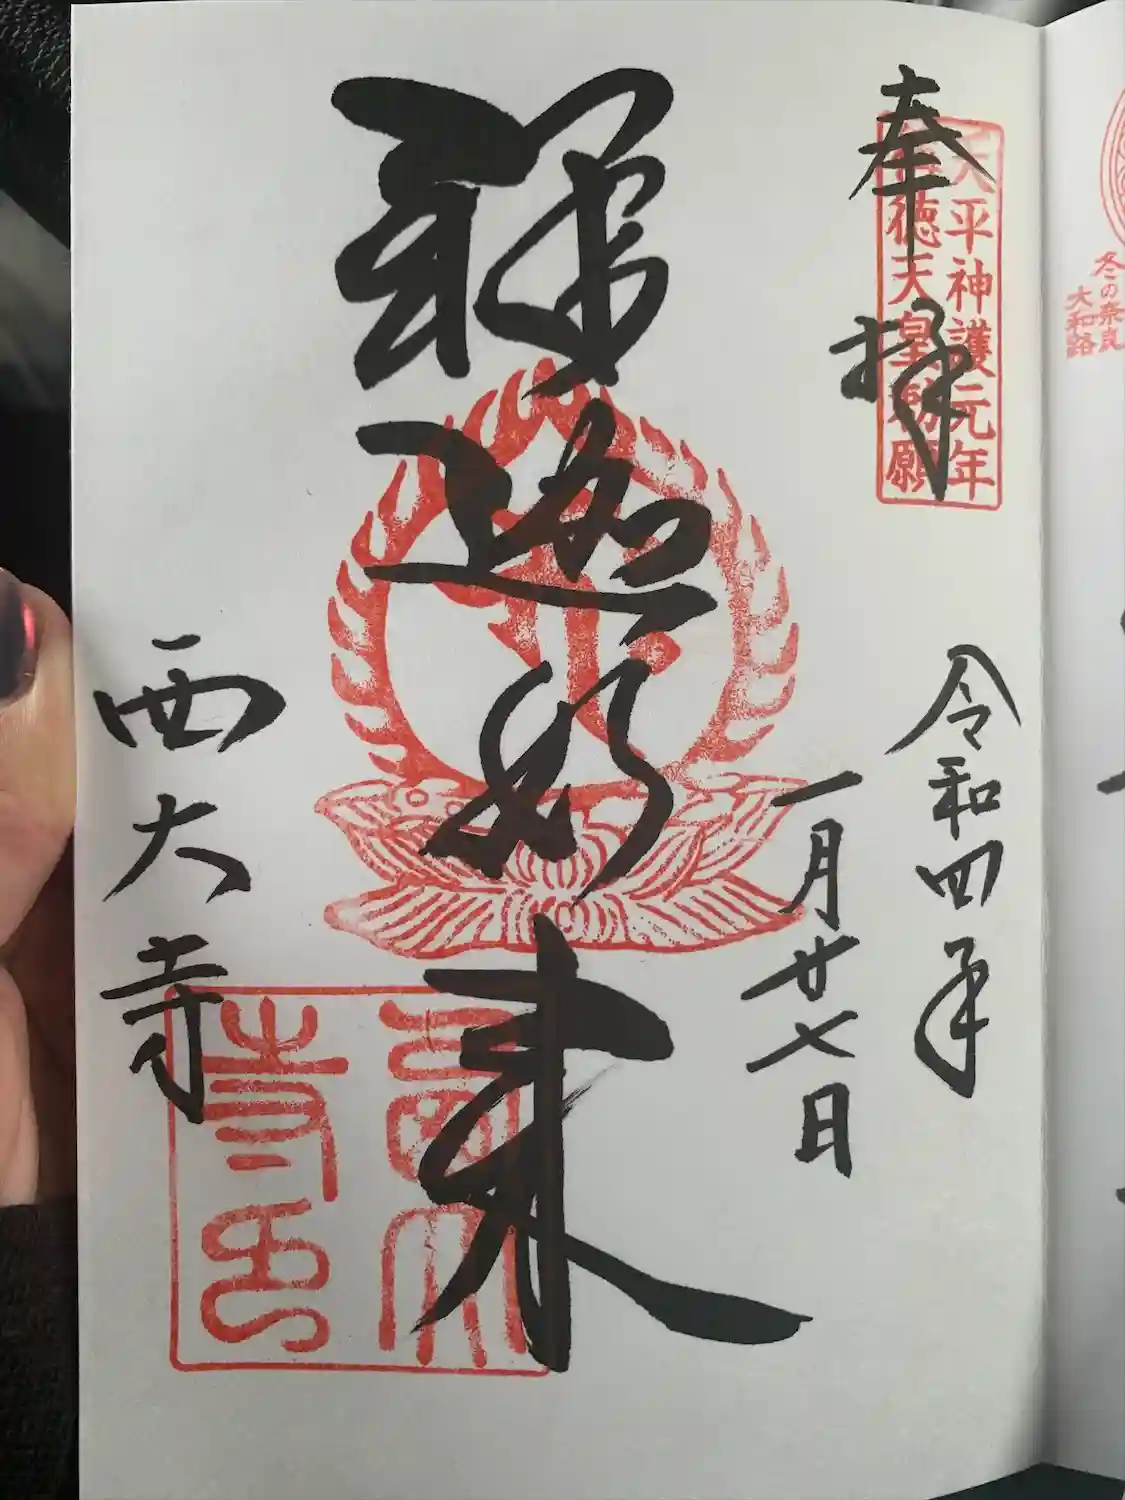 冬の奈良
大和路
奉拝
天平神護元年
称徳天皇勅願
令和四年
一月廿七日
釈迦如来
西大寺
西大
寺印